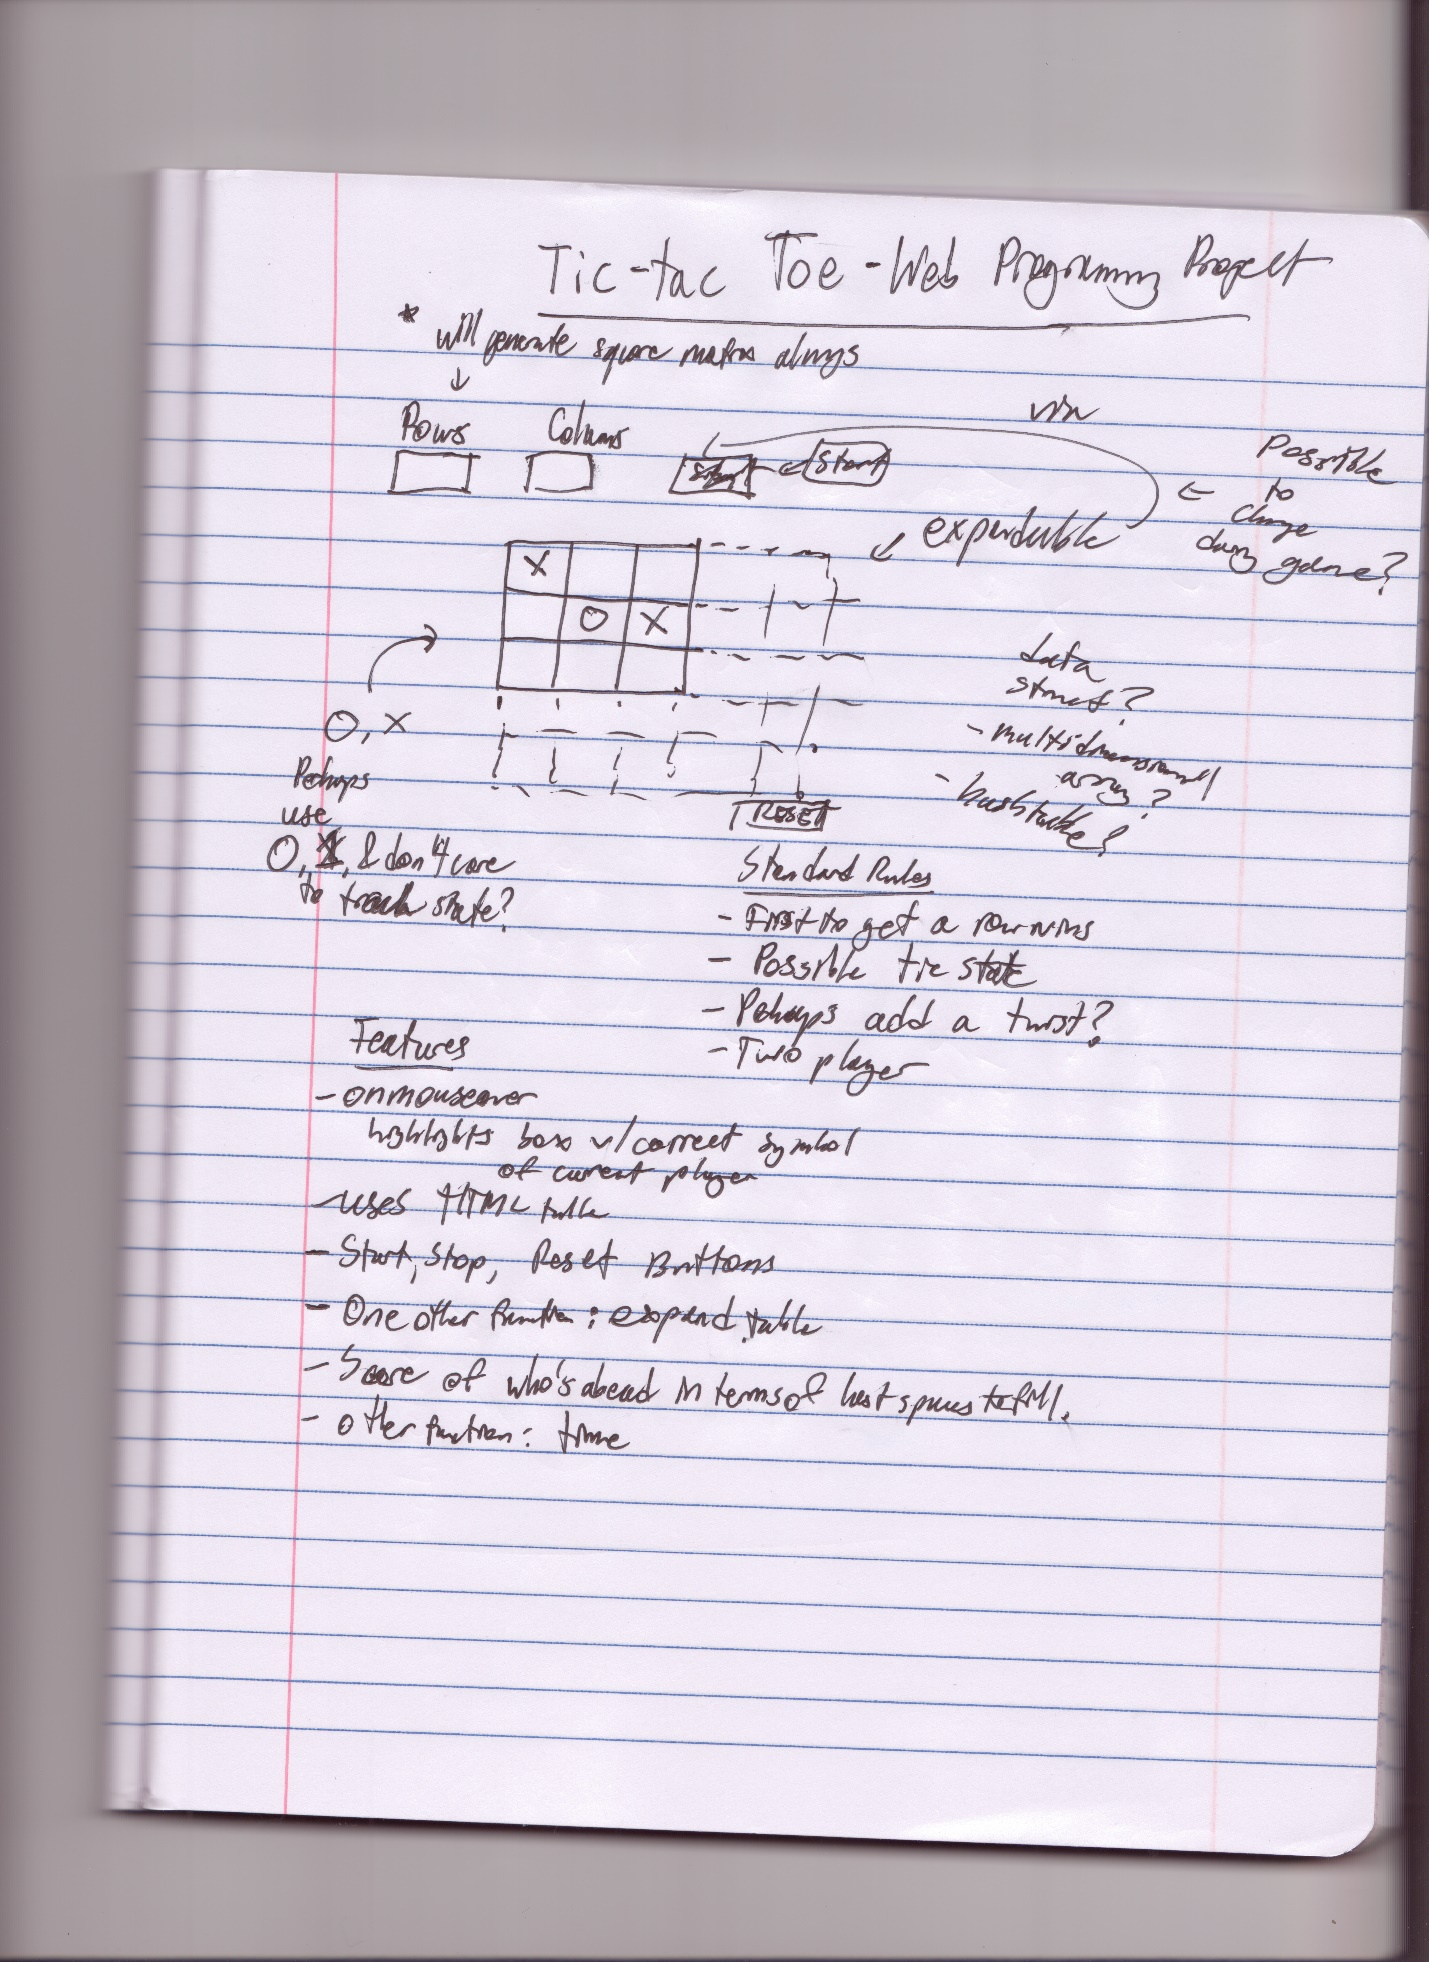 Tic-tac Toe - Web Programming Project
* will generate square matrix always
Rows Colums
start
via
expandable
Possible
to
change
during game?
X
O X
O, X
data
struct?
- multidimensional
array?
- hashtable?
Perhaps
use
O, X, & don't care
to track state?
RESET
Standard Rules
- First to get a row wins
- Possible tie state
- Perhaps add a twist?
- Two player
Features
- onmouseover
highlights box w/ correct symbol
of current player
- uses HTML table
- Start, Stop, Reset Buttons
- One other function: expand table
- Score of who's ahead in terms of least spaces to fill.
- other function: time